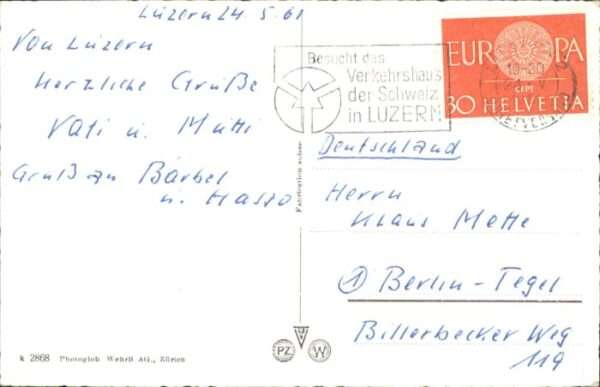 Luzern 24. 5. 61
Von Luzern
herzliche Grüße
Vati u. Mutti
Gruß an Bärbel
u. Hasso
Besucht das
Verkehrshaus
der Schweiz
in LUZERN
EUROPA
CEPT
30 HELVETIA
Deutschland
Herrn
Klaus Mette
① Berlin-Tegel
Billerbecker Weg
119
Fabrication suisse
k 2868 Photoglob Wehrli AG., Zürich
PZ W